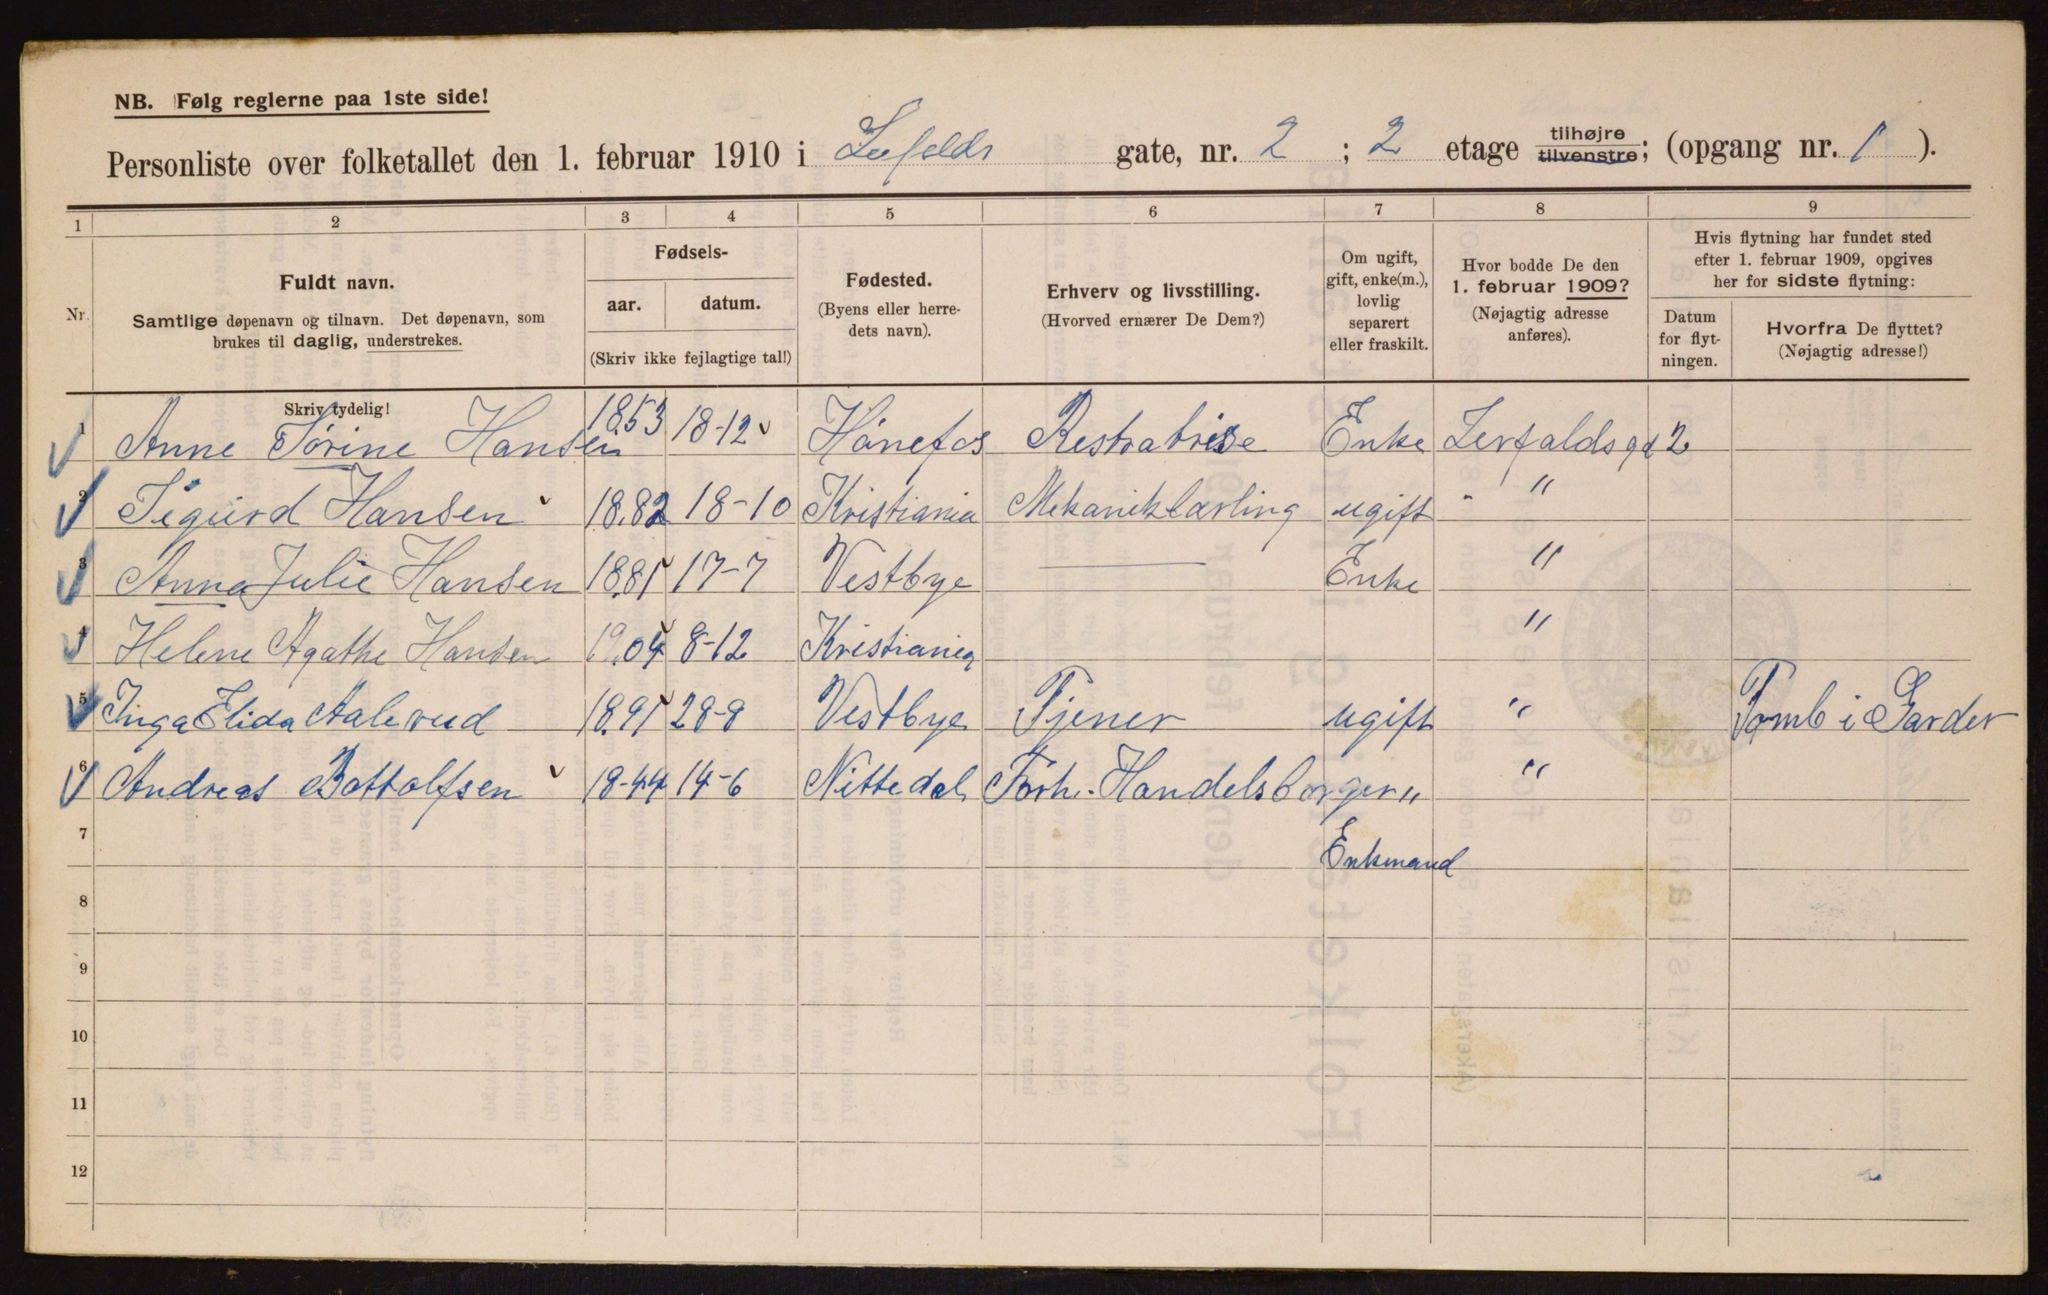 NB. Følg reglerne paa 1ste side!
Personliste over folketallet den 1. februar 1910 i gate, nr. 2 ; 2 etage tilhøjre tilvenstre; (opgang nr. 1 ).
1 2 3 4 5 6 7 8 9
Nr.
Fuldt navn.
Samtlige døpenavn og tilnavn. Det døpenavn, som
brukes til daglig, understrekes.
Skriv tydelig!
Fødsels-
aar. datum.
(Skriv ikke fejlagtige tal!)
Fødested.
(Byens eller herre-
dets navn).
Erhverv og livsstilling.
(Hvorved ernærer De Dem?)
Om ugift,
gift, enke(m.),
lovlig
separert
eller fraskilt.
Hvor bodde De den
1. februar 1909?
(Nøjagtig adresse
anføres).
Hvis flytning har fundet sted
efter 1. februar 1909, opgives
her for sidste flytning:
Datum
for flyt-
ningen.
Hvorfra De flyttet?
(Nøjagtig adresse!)
1 Anne Sørine Hansen 1853 18-12 Hønefos Enke Lerfaldsgd 2
2 Sigurd Hansen 18.82 18-10 Kristiania Mekaniklærling ugift " "
3 Anna Julie Hansen 18.81 17-7 Vestbye — Enke "
4 Helene Agathe Hansen 19.04 8-12 Kristiania "
5 Inga Elida Aalerud 18.91 28-8 Vestbye Tjener ugift " Tomb i Garder
6 Andreas Bottolfsen 18-44 14-6 Nittedal Forh. Handelsborger " "
7 Enkmand
8
9
10
11
12